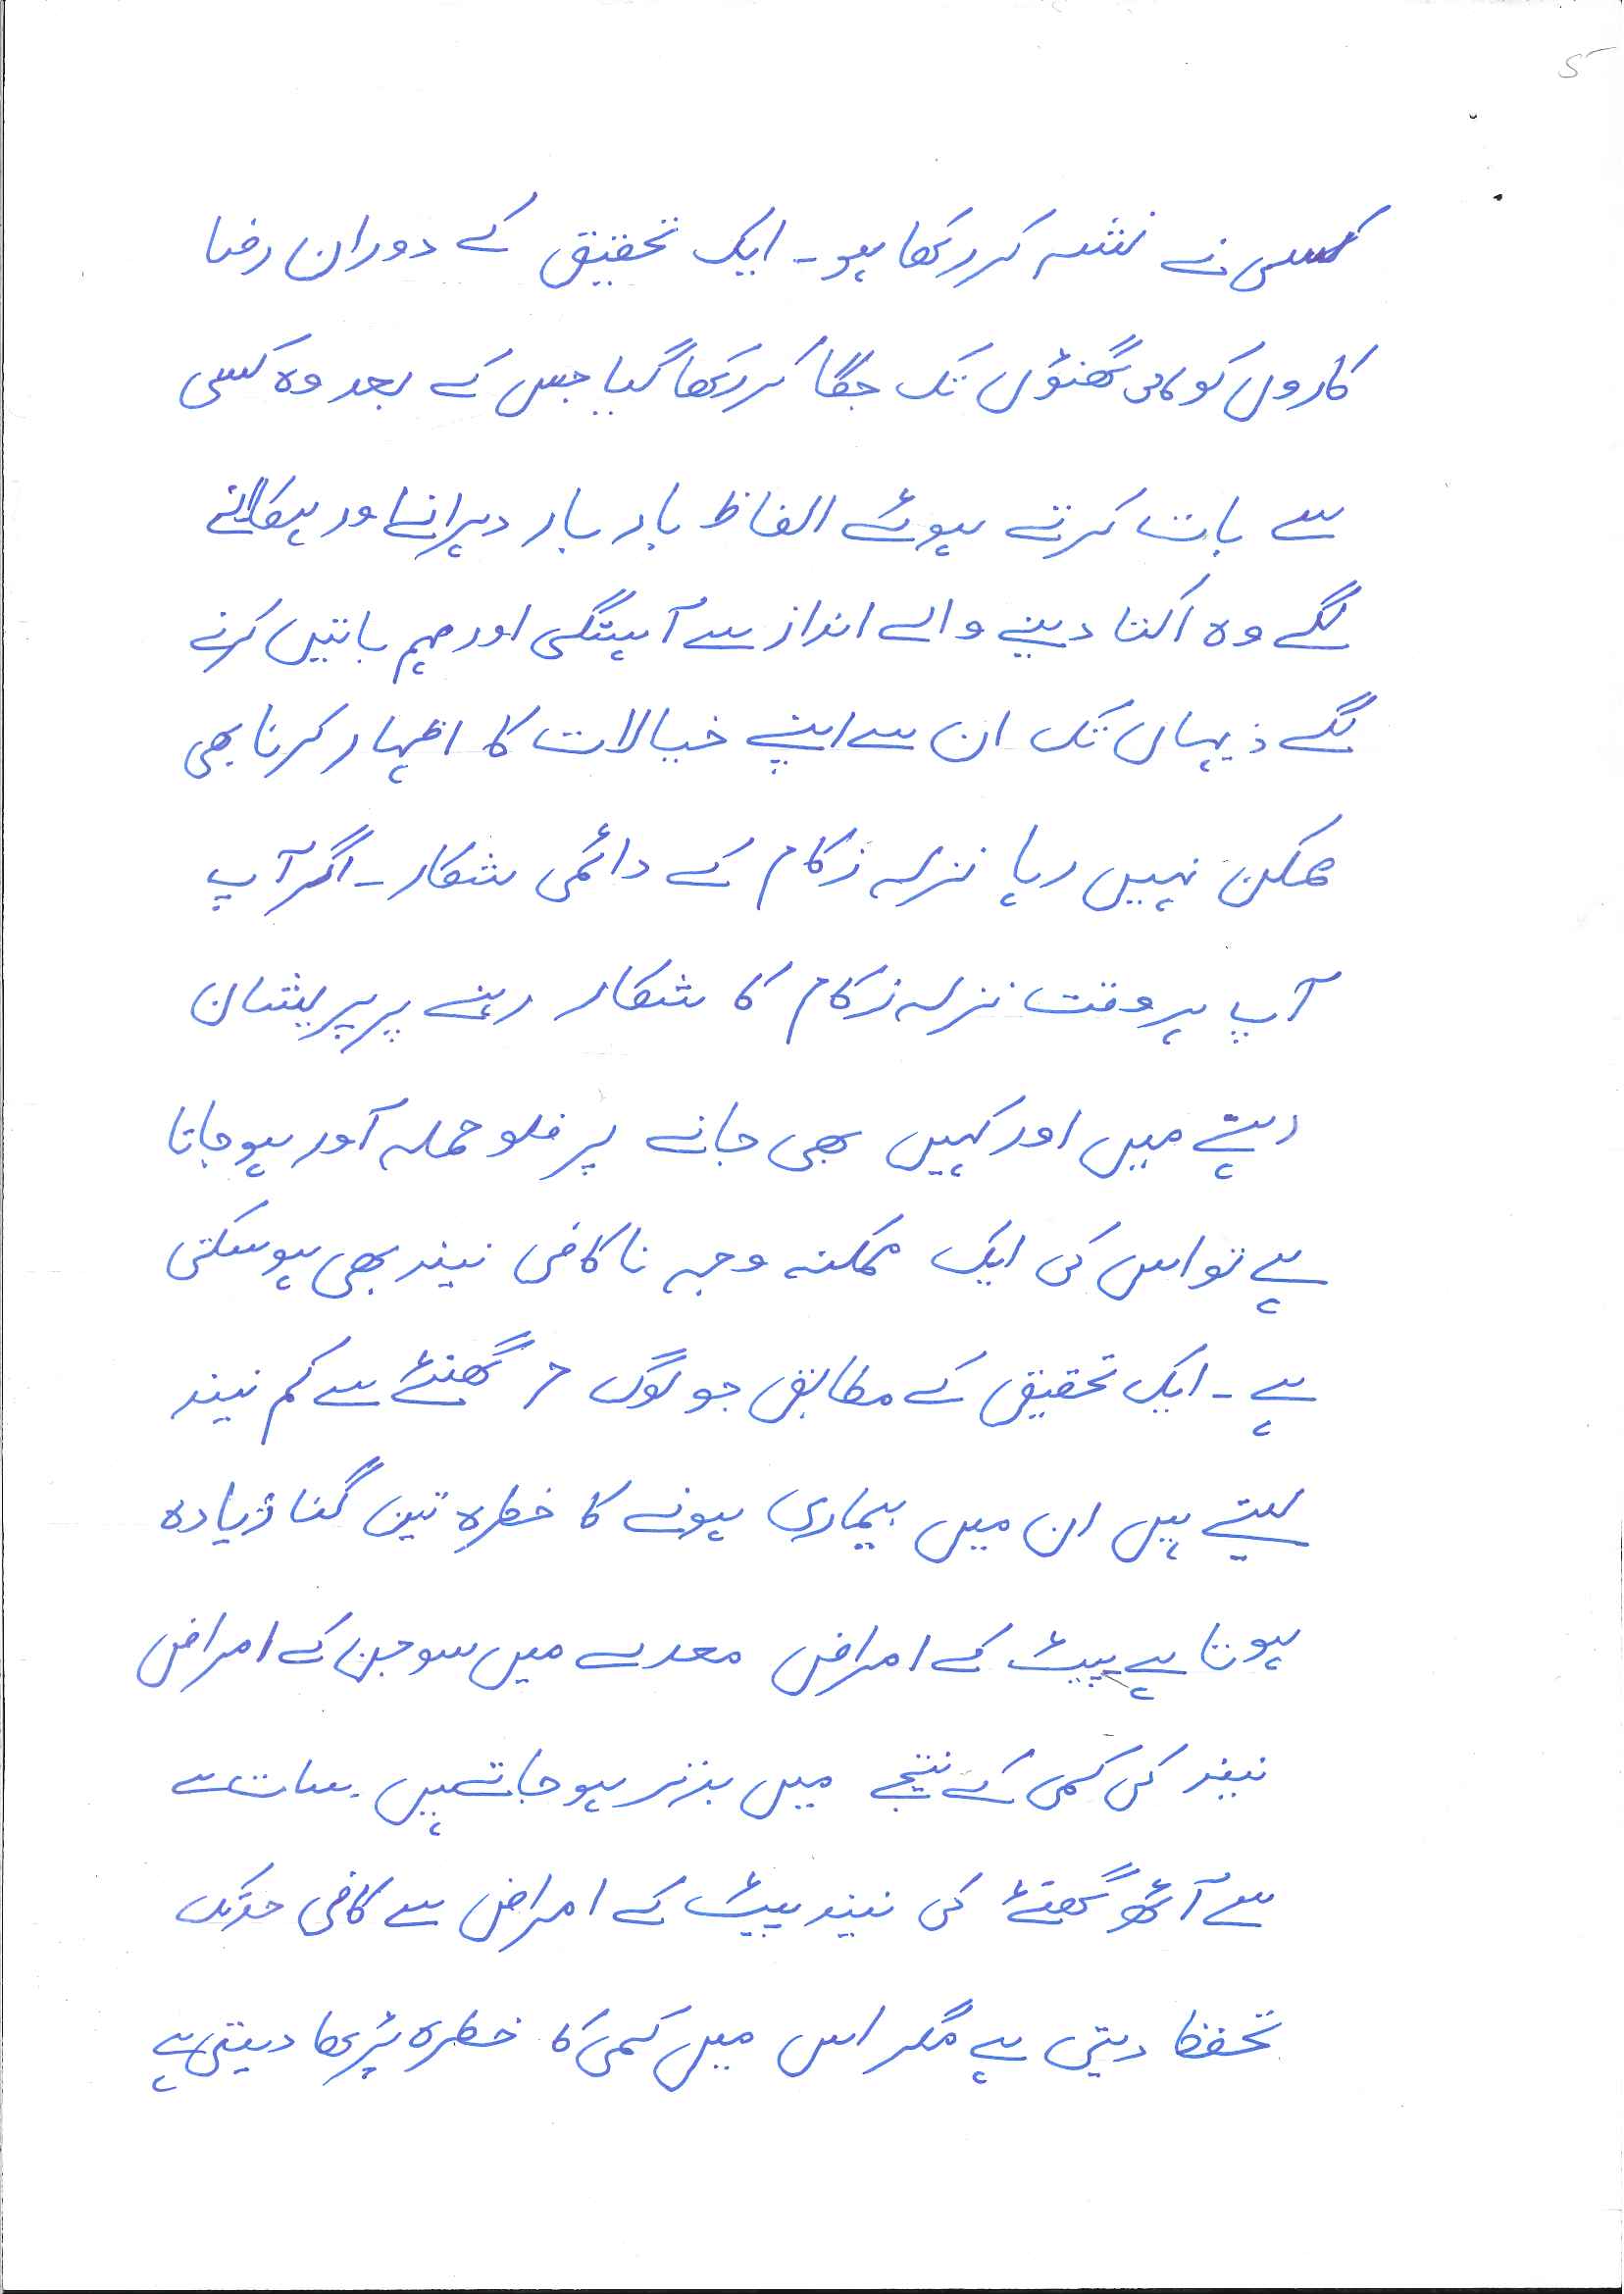 5
کسی نے نشہ کر رکھا ہو۔ ایک تحقیق کے دوران رضا
کاروں کو کافی گھنٹوں تک جگا کر رکھا گیا جس کے بعد وہ کسی
سے بات کرتے ہوئے الفاظ بار بار دہرانے اور ہکلانے
لگے وہ اکتا دینے والے انداز سے آہستگی اور مبہم باتیں کرنے
لگے یہاں تک ان سے اپنے خیالات کا اظہار کرنا بھی
ممکن نہیں رہا نزلہ زکام کے دائمی شکار۔ اگر آپ
آپ ہر وقت نزلہ زکام کا شکار رہنے پر پریشان
رہتے ہیں اور کہیں بھی جانے پر فلو حملہ آور ہو جاتا
ہے تو اس کی ایک ممکنہ وجہ ناکافی نیند بھی ہو سکتی
ہے۔ ایک تحقیق کے مطابق جو لوگ 7 گھنٹے سے کم نیند
لیتے ہیں ان میں بیماری ہونے کا خطرہ تین گنا زیادہ
ہوتا ہے پیٹ کے امراض معدے میں سوجن کے امراض
نیند کی کمی کے نتیجے میں بدتر ہو جاتے ہیں۔ سات سے
سے آٹھ گھنٹے کی نیند پیٹ کے امراض سے کافی حد تک
تحفظ دیتی ہے مگر اس میں کمی کا خطرہ بڑھا دیتی ہے